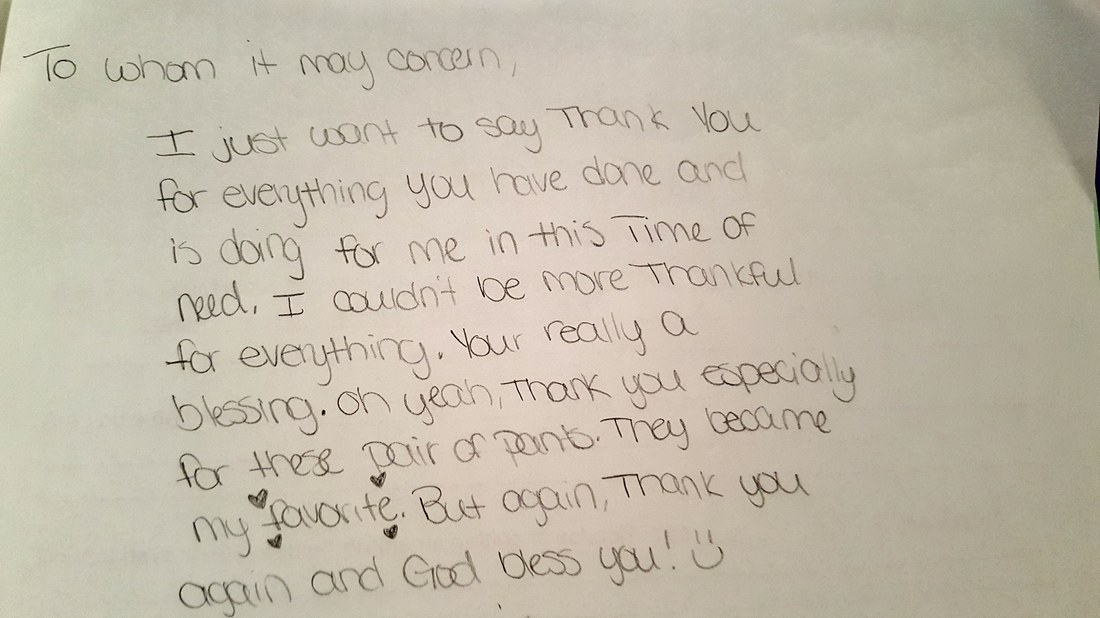 To whom it may concern,
I just want to say Thank You
for everything you have done and
is doing for me in this Time of
need. I couldn't be more Thankful
for everything. Your really a
blessing. Oh yeah, Thank you especially
for these pair of pants. They became
my favorite. But again, Thank you
again and God bless you! :)